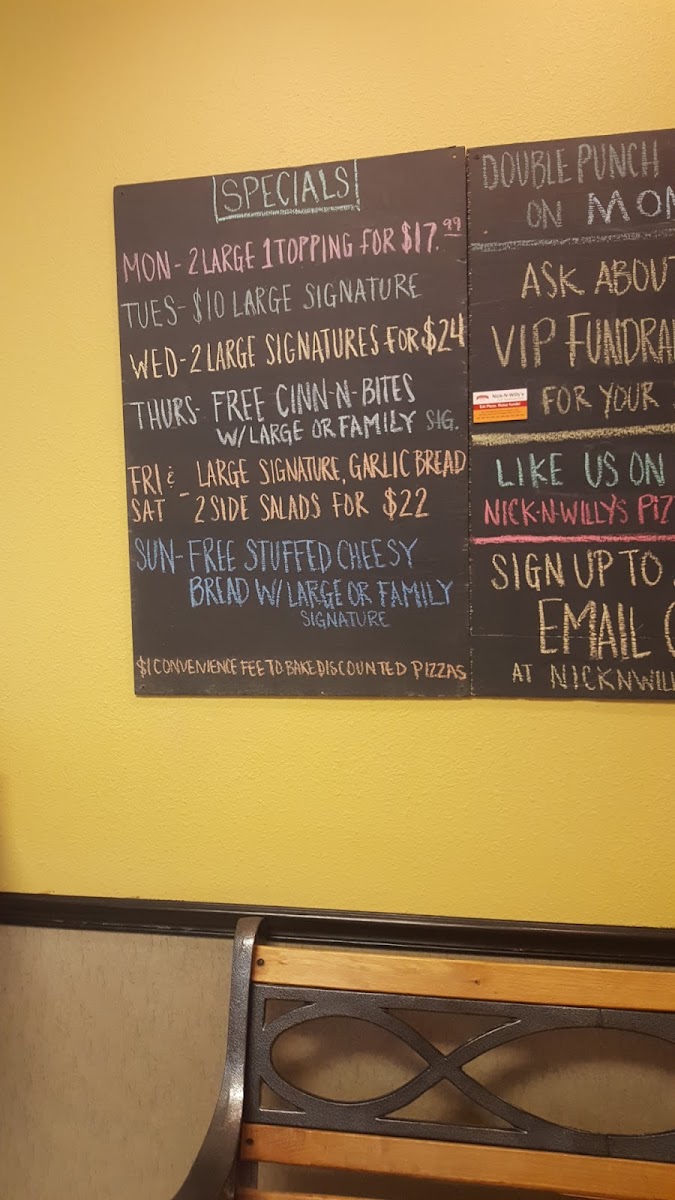 SPECIALS
MON- 2 LARGE 1 TOPPING FOR $17.99
TUES- $10 LARGE SIGNATURE
WED- 2 LARGE SIGNATURES FOR $24
THURS- FREE CINN-N-BITES
W/ LARGE OR FAMILY SIG.
FRI & - LARGE SIGNATURE, GARLIC BREAD
SAT 2 SIDE SALADS FOR $22
SUN- FREE STUFFED CHEESY
BREAD W/ LARGE OR FAMILY
SIGNATURE
$1 CONVENIENCE FEE TO BAKE DISCOUNTED PIZZAS
DOUBLE PUNCH
ON MON
ASK ABOUT
VIP FUNDRA
FOR YOUR
Nick-N-Willy's
LIKE US ON
NICK-N-WILLY'S PIZ
SIGN UP TO
EMAIL
AT NICKNWILL